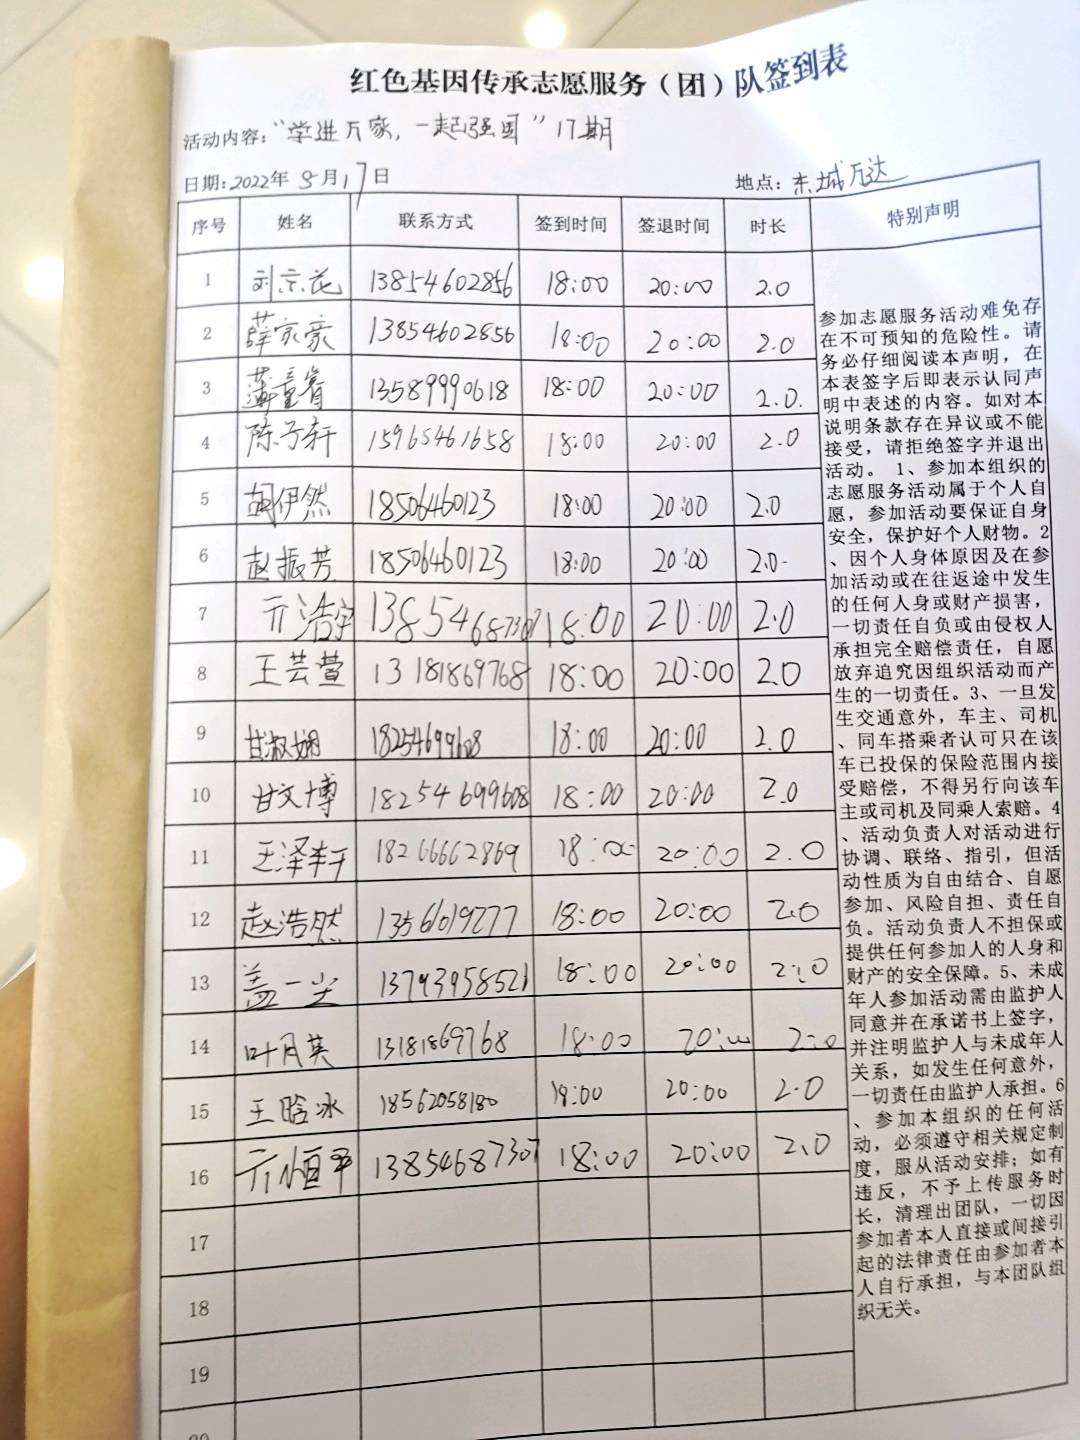 红色基因传承志愿服务（团）队签到表
活动内容：“学进万家，一起强国”17期
日期：2022年 8月17日 地点：东城万达
序号 姓名 联系方式 签到时间 签退时间 时长 特别声明
1 刘京花 13854602856 18:00 20:00 2.0
2 薛家豪 13854602856 18:00 20:00 2.0
3 13589990618 18:00 20:00 2.0.
4 陈子轩 15965461658 18:00 20:00 2.0
5 胡伊然 18506460123 18:00 20:00 2.0
6 赵振芳 18506460123 18:00 20:00 2.0
7 亓浩宇 13854687307 18:00 20:00 2.0
8 王芸萱 13181869768 18:00 20:00 2.0
9 甘淑娟 18254699608 18:00 20:00 2.0
10 甘文博 18254699608 18:00 20:00 2.0
11 王泽轩 18266662869 18:00 20:00 2.0
12 赵浩然 13561019277 18:00 20:00 2.0
13 盖一尘 13793958521 18:00 20:00 2:0
14 叶月英 13181869768 18:00 20:00 2:0
15 王晗冰 18562058180 18:00 20:00 2.0
16 亓恒平 13854687307 18:00 20:00 2.0
17
18
19
20
参加志愿服务活动难免存
在不可预知的危险性。请
务必仔细阅读本声明，在
本表签字后即表示认同声
明中表述的内容。如对本
说明条款存在异议或不能
接受，请拒绝签字并退出
活动。 1、参加本组织的
志愿服务活动属于个人自
愿，参加活动要保证自身
安全，保护好个人财物。2
、因个人身体原因及在参
加活动或在往返途中发生
的任何人身或财产损害，
一切责任自负或由侵权人
承担完全赔偿责任，自愿
放弃追究因组织活动而产
生的一切责任。3、一旦发
生交通意外，车主、司机
、同车搭乘者认可只在该
车已投保的保险范围内接
受赔偿，不得另行向该车
主或司机及同乘人索赔。4
、活动负责人对活动进行
协调、联络、指引，但活
动性质为自由结合、自愿
参加、风险自担、责任自
负。活动负责人不担保或
提供任何参加人的人身和
财产的安全保障。5、未成
年人参加活动需由监护人
同意并在承诺书上签字，
并注明监护人与未成年人
关系，如发生任何意外，
一切责任由监护人承担。6
、参加本组织的任何活
动，必须遵守相关规定制
度，服从活动安排；如有
违反，不予上传服务时
长，清理出团队，一切因
参加者本人直接或间接引
起的法律责任由参加者本
人自行承担，与本团队组
织无关。